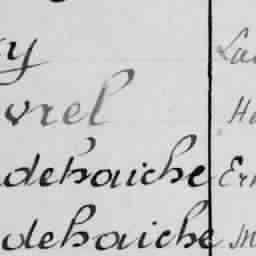 y La
vrel Ha
dehaiche Er
dehaiche M